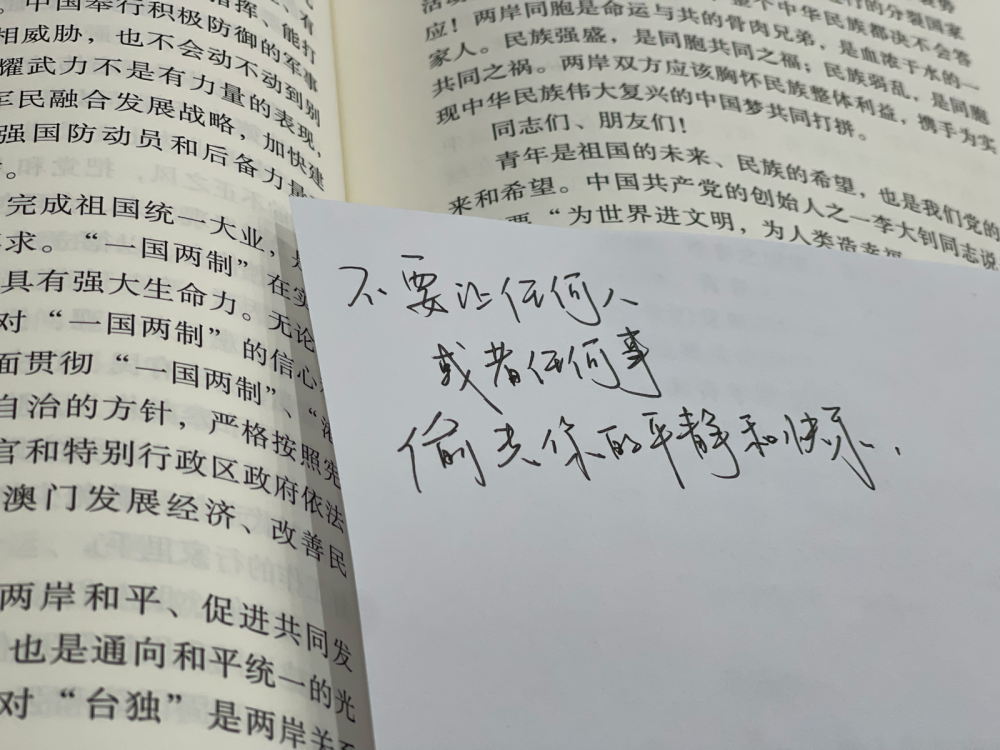 中国奉行积极防御的军事
相威胁，也不会动不动到别
耀武力不是有力量的表现，
军民融合发展战略，加快建
强国防动员和后备力量
完成祖国统一大业，
求。“一国两制”在实
具有强大生命力。无论
对“一国两制”的信心
面贯彻“一国两制”、“
自治的方针，严格按照宪
官和特别行政区政府依法
澳门发展经济、改善民
两岸和平、促进共同发
也是通向和平统一的光
对“台独”是两岸关系
应！两岸同胞是命运与共的骨肉兄弟，是血浓于水的一
家人。民族强盛，是同胞共同之福；民族弱乱，是同胞
共同之祸。两岸双方应该胸怀民族整体利益，携手为实
现中华民族伟大复兴的中国梦共同打拼。
同志们、朋友们！
青年是祖国的未来、民族的希望，也是我们党的
来和希望。中国共产党的创始人之一李大钊同志说
要“为世界进文明，为人类造幸福
不要让任何人
或者任何事
偷去你的平静和快乐.